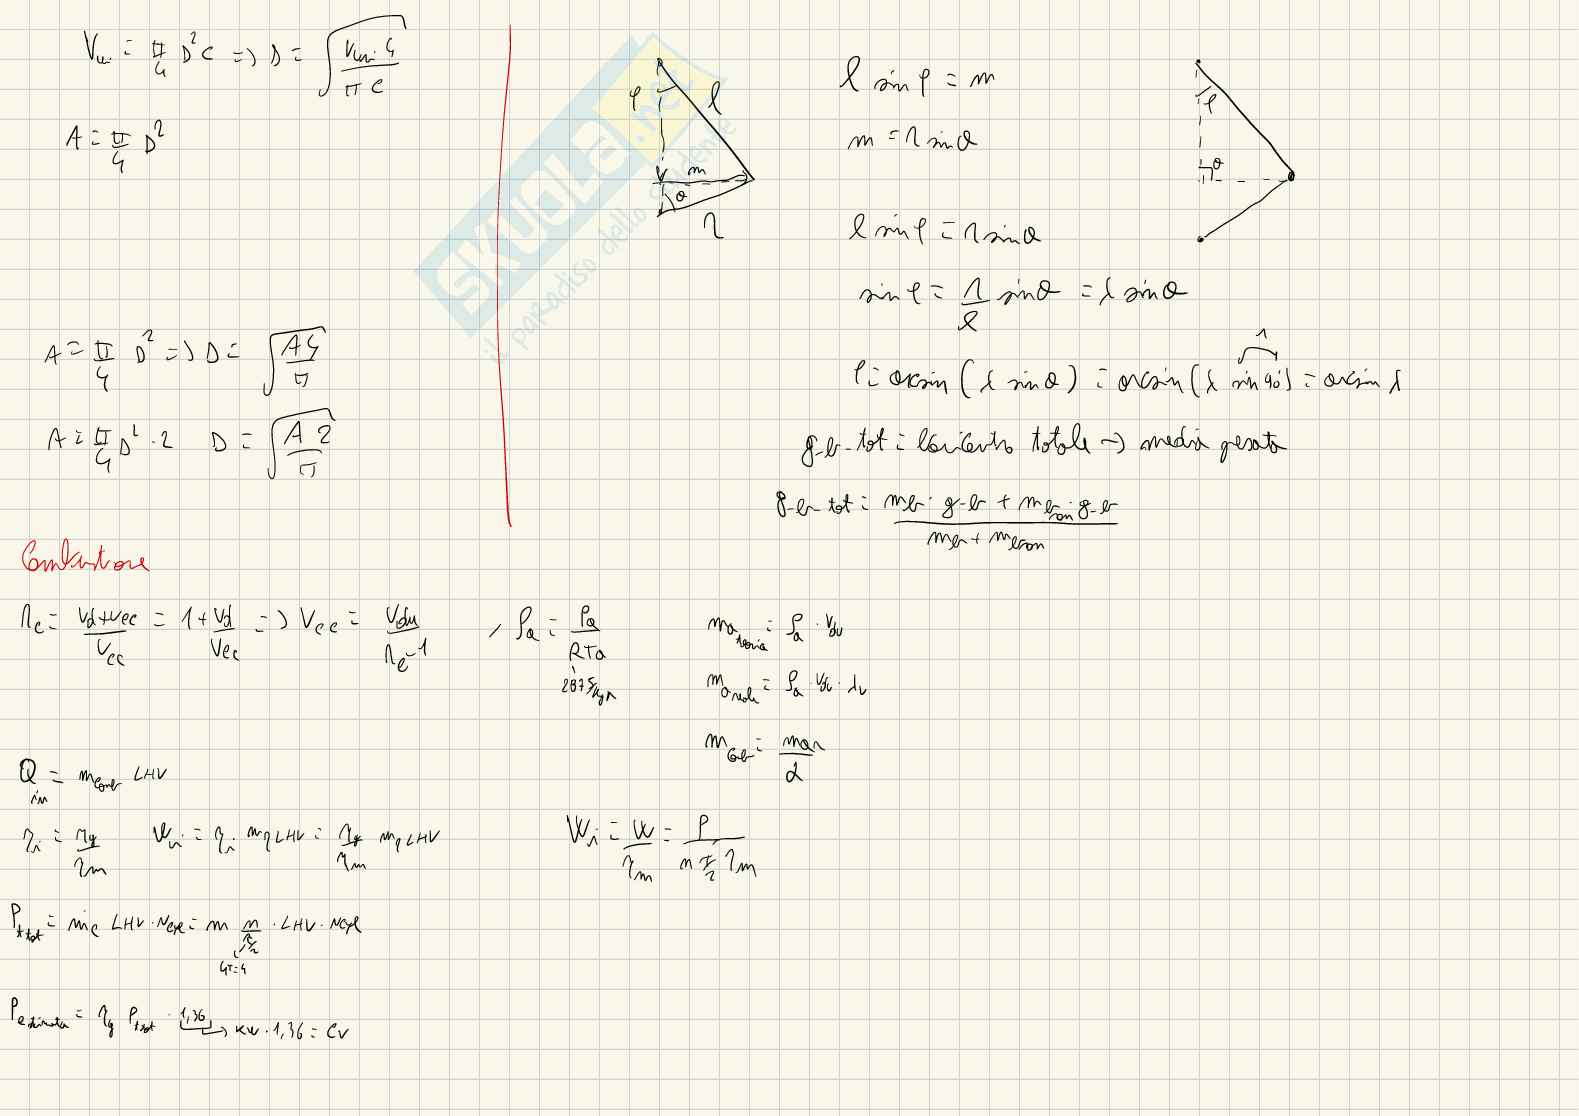 V_u = π/4 D² c => D = √(V_uni 4 / π c)
A = π/4 D²
A = π/4 D² => D = √(A 4 / π)
A = π/4 D² · 2 D = √(A 2 / π)
φ l
m
θ
r
l sin φ = m
m = r sin θ
l sin φ = r sin θ
sin φ = r/l sin θ = λ sin θ
1
φ = arcsin (λ sin θ) = arcsin (λ sin 90°) = arcsin λ
φ
θ
totale -> media pesata
SKUOLA.net
il paradiso dello studente
r_c = (Vd + Vcc)/Vcc = 1 + Vd/Vcc => Vcc = Vdu/(r_c - 1) , ρ_a = Pa/(R Ta)
287 J/kg K
m_a teorica = ρ_a · Vdu
m_a reale = ρ_a · Vdu · λv
m_comb = mar/α
Q_in = m_comb LHV
η_i = ηg/ηm W_i = η_i mf LHV = ηg/ηm mf LHV
W_i = W/ηm = P/(n τ/2 ηm)
P_t tot = ṁc LHV · Ncyl = m n/(τ/2) · LHV · Ncyl
4T = 4
P_e stimata = ηg P_t tot · 1,36 -> kW · 1,36 = CV